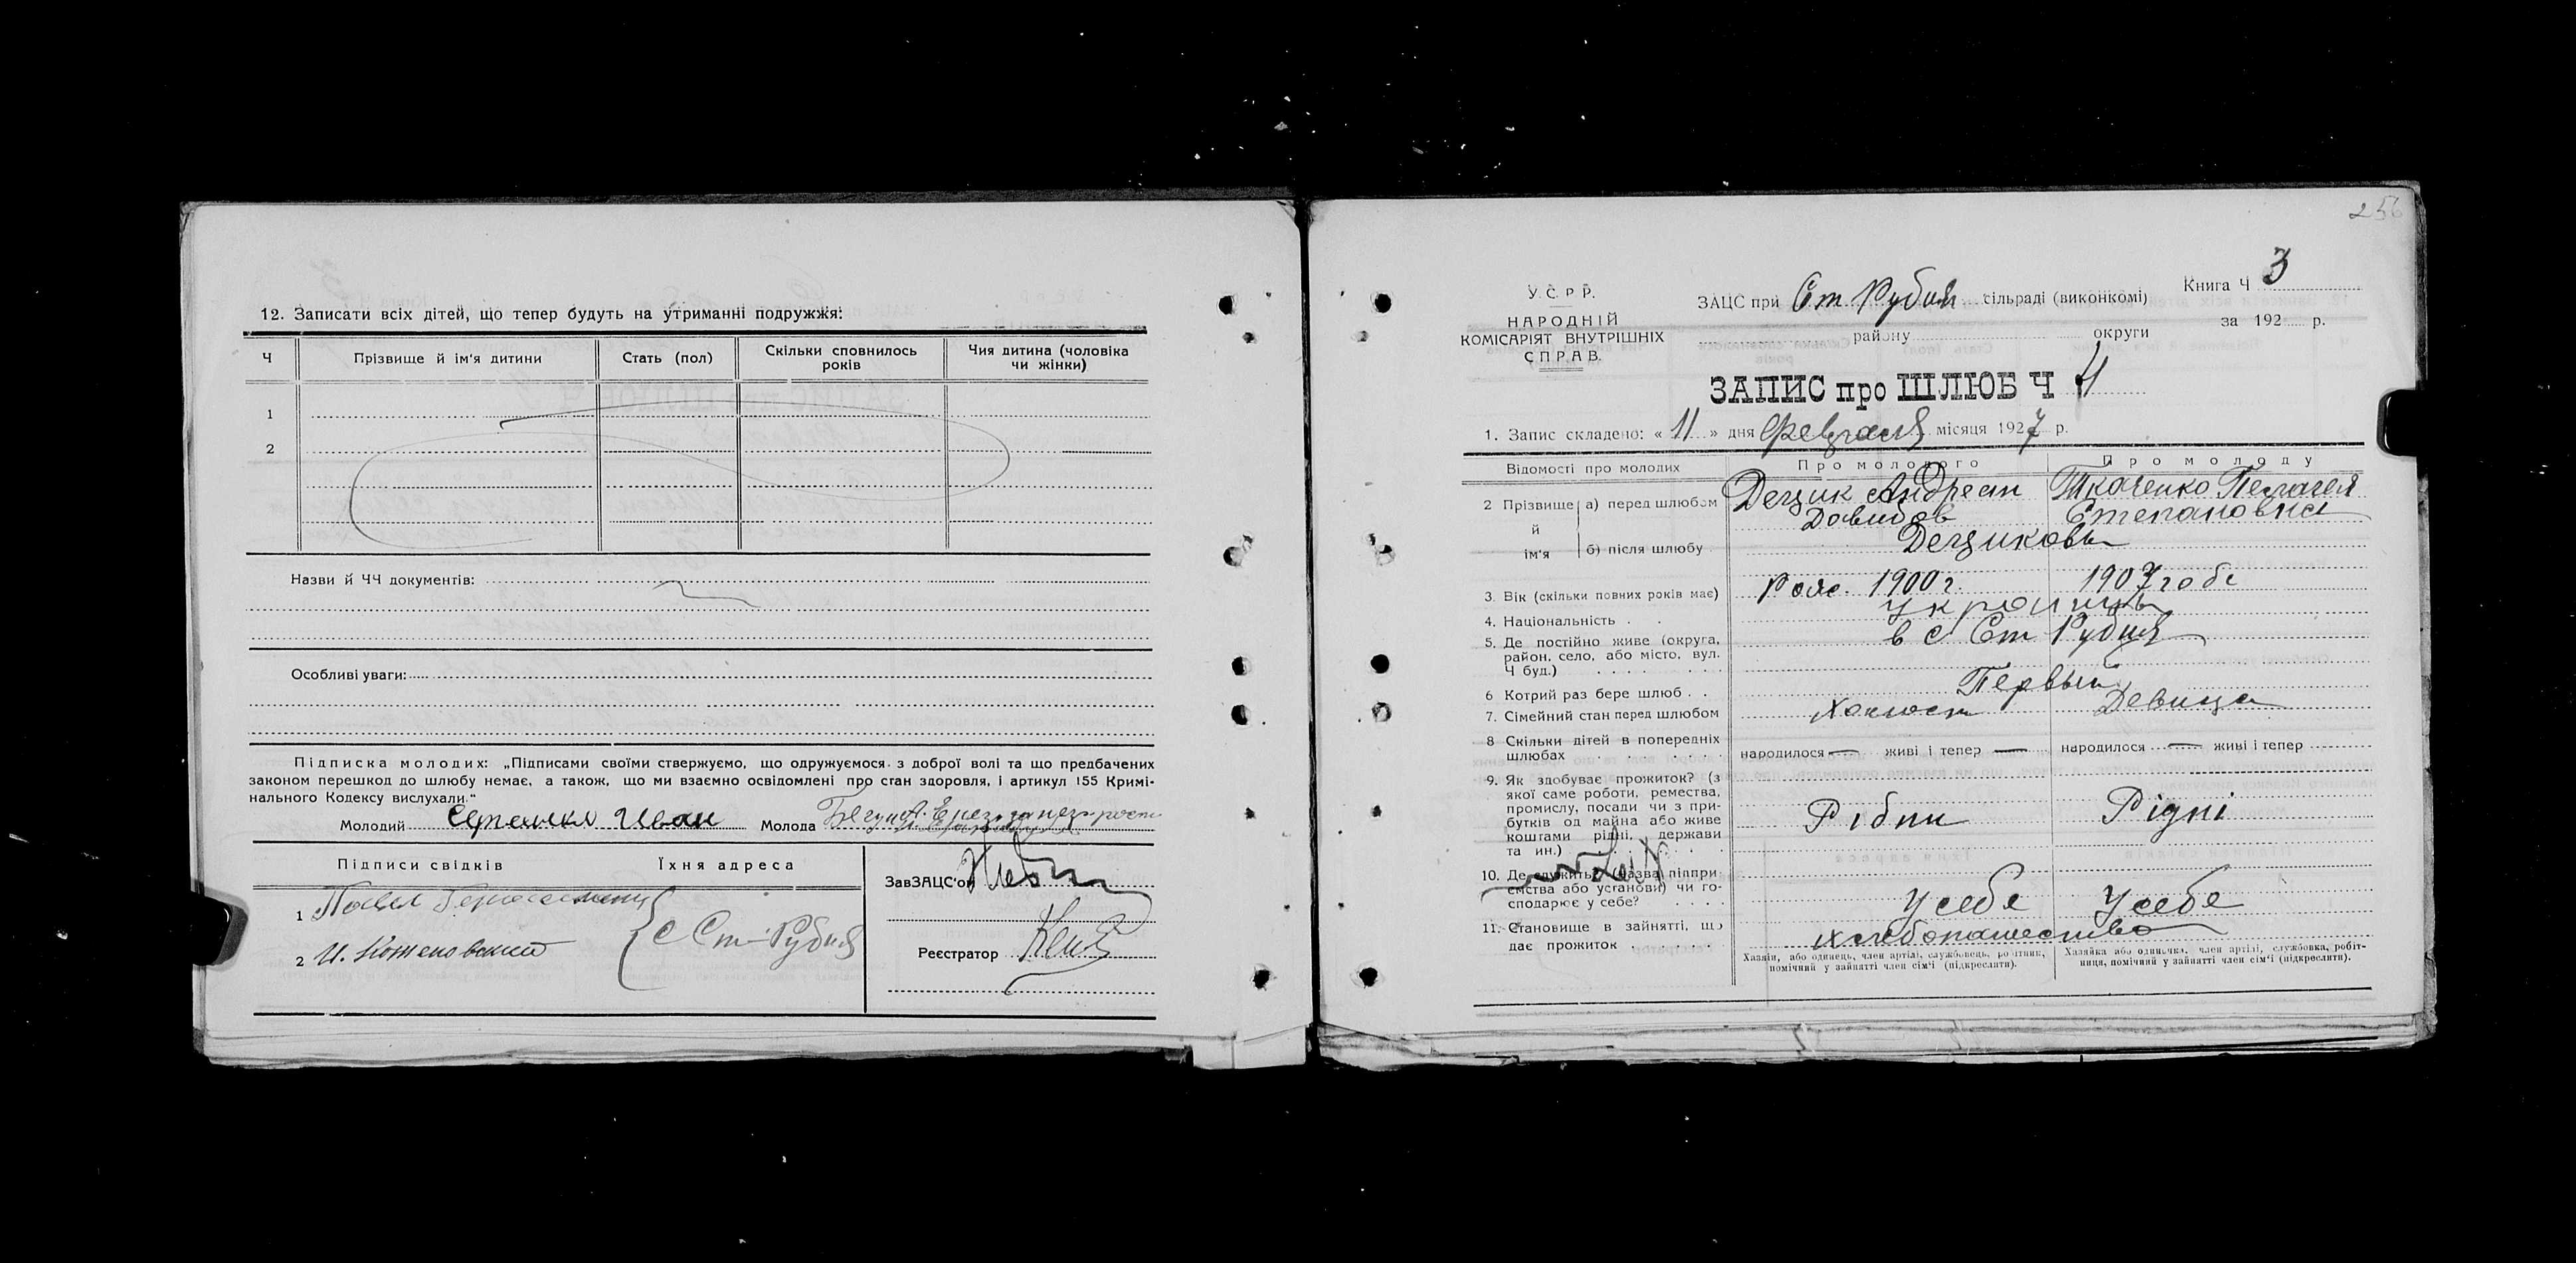 12. Записати всіх дітей, що тепер будуть на утриманні подружжя:
Ч Прізвище й ім'я дитини Стать (пол) Скільки сповнилось років Чия дитина (чоловіка чи жінки)
1
2
Назви й ЧЧ документів:
Особливі уваги:
Підписка молодих: „Підписами своїми ствержуємо, що одружуємося з доброї волі та що предбачених
законом перешкод до шлюбу немає, а також, що ми взаємно освідомлені про стан здоровля, і артикул 155 Кримі-
нального Кодексу вислухали."
Молодий Иван Молода
Підписи свідків Їхня адреса
ЗавЗАЦС'ом
1 Павел
с Ст-Рубня
2 И.
Реєстратор
256
У.С.Р.Р.
НАРОДНІЙ
КОМІСАРІЯТ ВНУТРІШНІХ
СПРАВ.
ЗАЦС при Ст Рубня сільраді (виконкомі)
Книга Ч 3
району округи
за 192 р.
ЗАПИС про ШЛЮБ Ч 4
1. Запис складено: « 11 » дня Февраля місяця 1927 р.
Відомості про молодих Про молодого Про молоду
2 Прізвище й ім'я а) перед шлюбом Андреан Давидов Ткаченко Пелагея Степановна
б) після шлюбу
3. Вік (скільки повних років має) Рож. 1900 г. 1907 годе
4. Національність украинцы
5. Де постійно живе (округа,
район, село, або місто, вул.
Ч буд.) в с Ст Рубня
6 Котрий раз бере шлюб Первый
7. Сімейний стан перед шлюбом Холост Девица
8 Скільки дітей в попередніх
шлюбах народилося — живі і тепер — народилося — живі і тепер
9. Як здобуває прожиток? (з
якої саме роботи, ремества,
промислу, посади чи з при-
бутків од майна або живе
коштами рідні, держави
та ин.) Рідні
10. Де служить? (назва підпри-
ємства або установи) чи го-
сподарює у себе? у себе у себе
11. Становище в зайнятті, що
дає прожиток хлебопашество
Хазяїн, або одинець, член артілі, службовець, робітник,
помічний у зайнятті член сім'ї (підкреслити).
Хазяйка або одиначка, член артілі, службовка, робіт-
ниця, помічний у зайнятті член сім'ї (підкреслити).